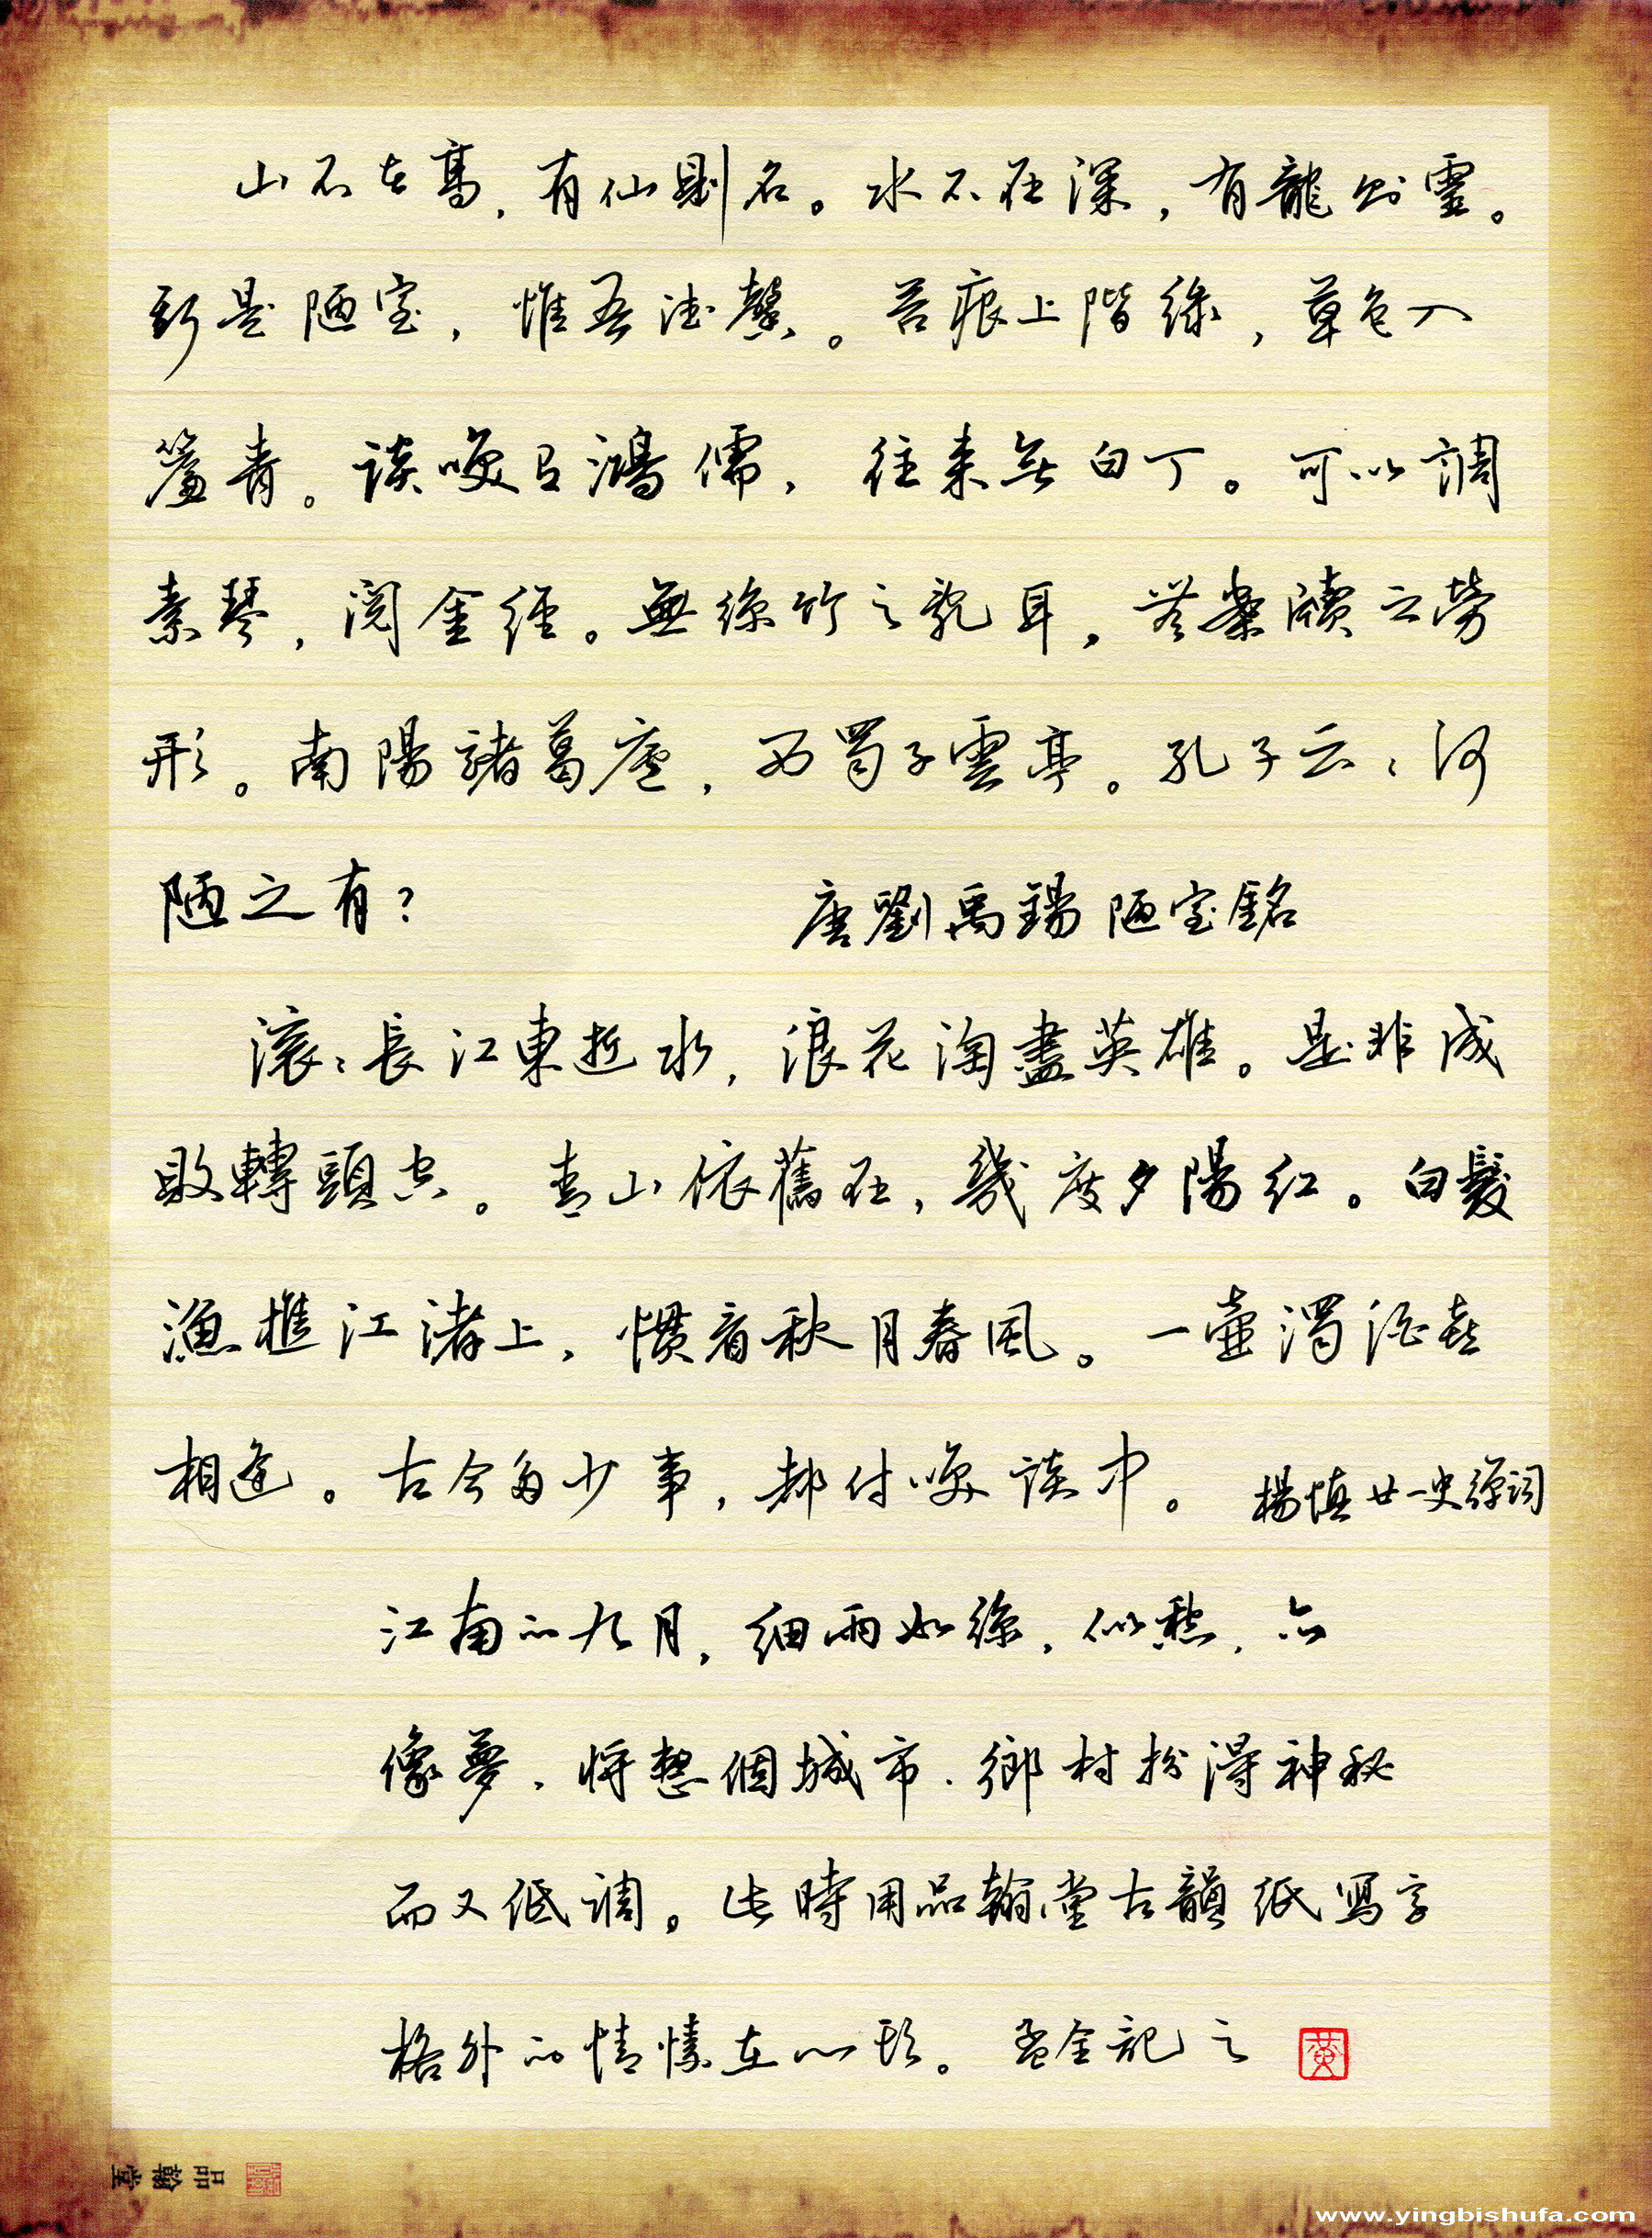 山不在高，有仙則名。水不在深，有龍則靈。
斯是陋室，惟吾德馨。苔痕上階綠，草色入
簾青。談笑有鴻儒，往來無白丁。可以調
素琴，閱金經。無絲竹之亂耳，無案牘之勞
形。南陽諸葛廬，西蜀子雲亭。孔子云：何
陋之有？
唐劉禹錫陋室銘
滾：長江東逝水，浪花淘盡英雄。是非成
敗轉頭空。青山依舊在，幾度夕陽紅。白髮
漁樵江渚上，慣看秋月春風。一壺濁酒喜
相逢。古今多少事，都付笑談中。
楊慎廿一史彈詞
江南的九月，細雨如絲，似愁，亦
像夢，將整個城市、鄉村扮得神秘
而又低調。此時用品翰堂古韻紙寫字
格外的情愫在心頭。金記之
黄
品翰堂
www.yingbishufa.com